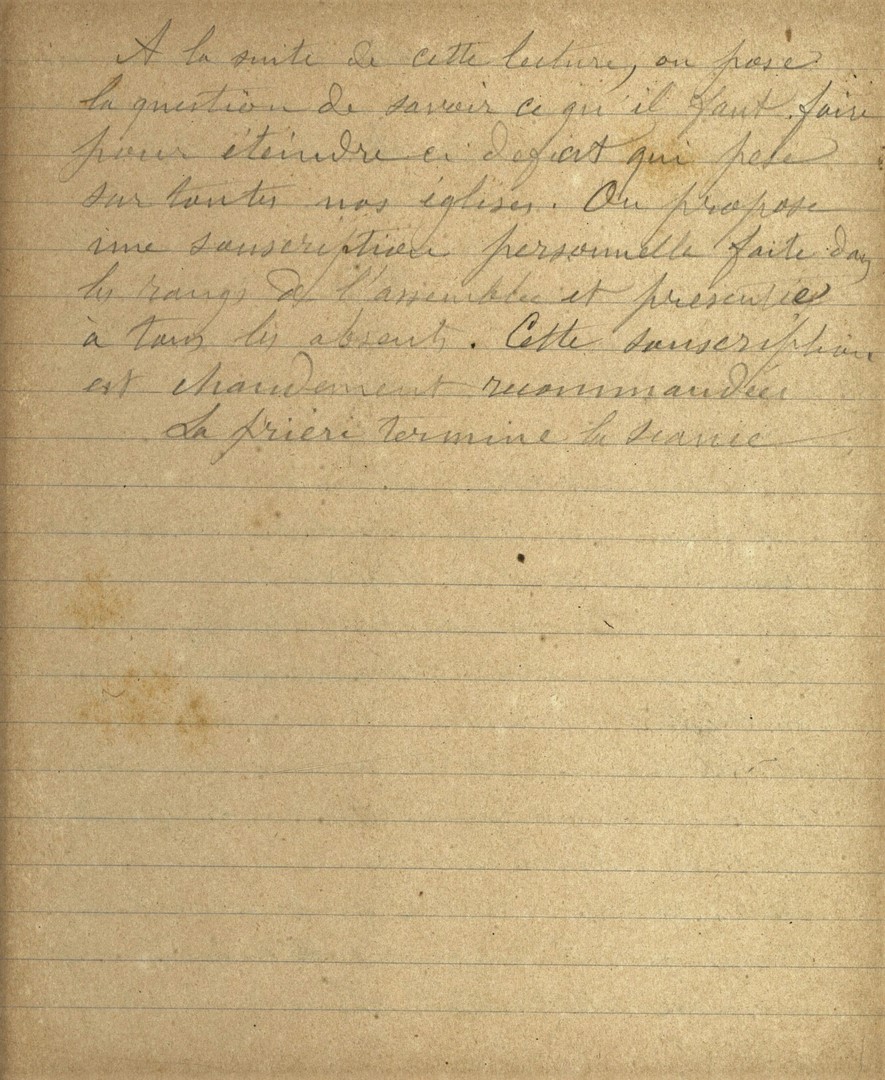 A la suite de cette lecture, on pose
la question de savoir ce qu'il faut faire
pour éteindre ce deficit qui pese
sur toutes nos églises. On propose
une souscription personnelle faite dans
les rangs de l'assemblée et presentée
à tous les absents. Cette souscription
est chaudement recommandée
La prière termine la séance